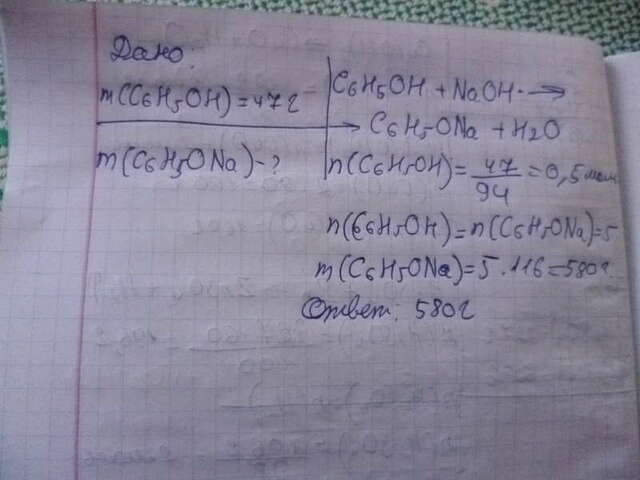 Дано:
m(C6H5OH)=47г
m(C6H5ONa)-?
C6H5OH + NaOH →
→ C6H5ONa + H2O
n(C6H5OH)=47/94=0,5моль
n(C6H5OH)=n(C6H5ONa)=5
m(C6H5ONa)=5.116=580г.
Ответ: 580г